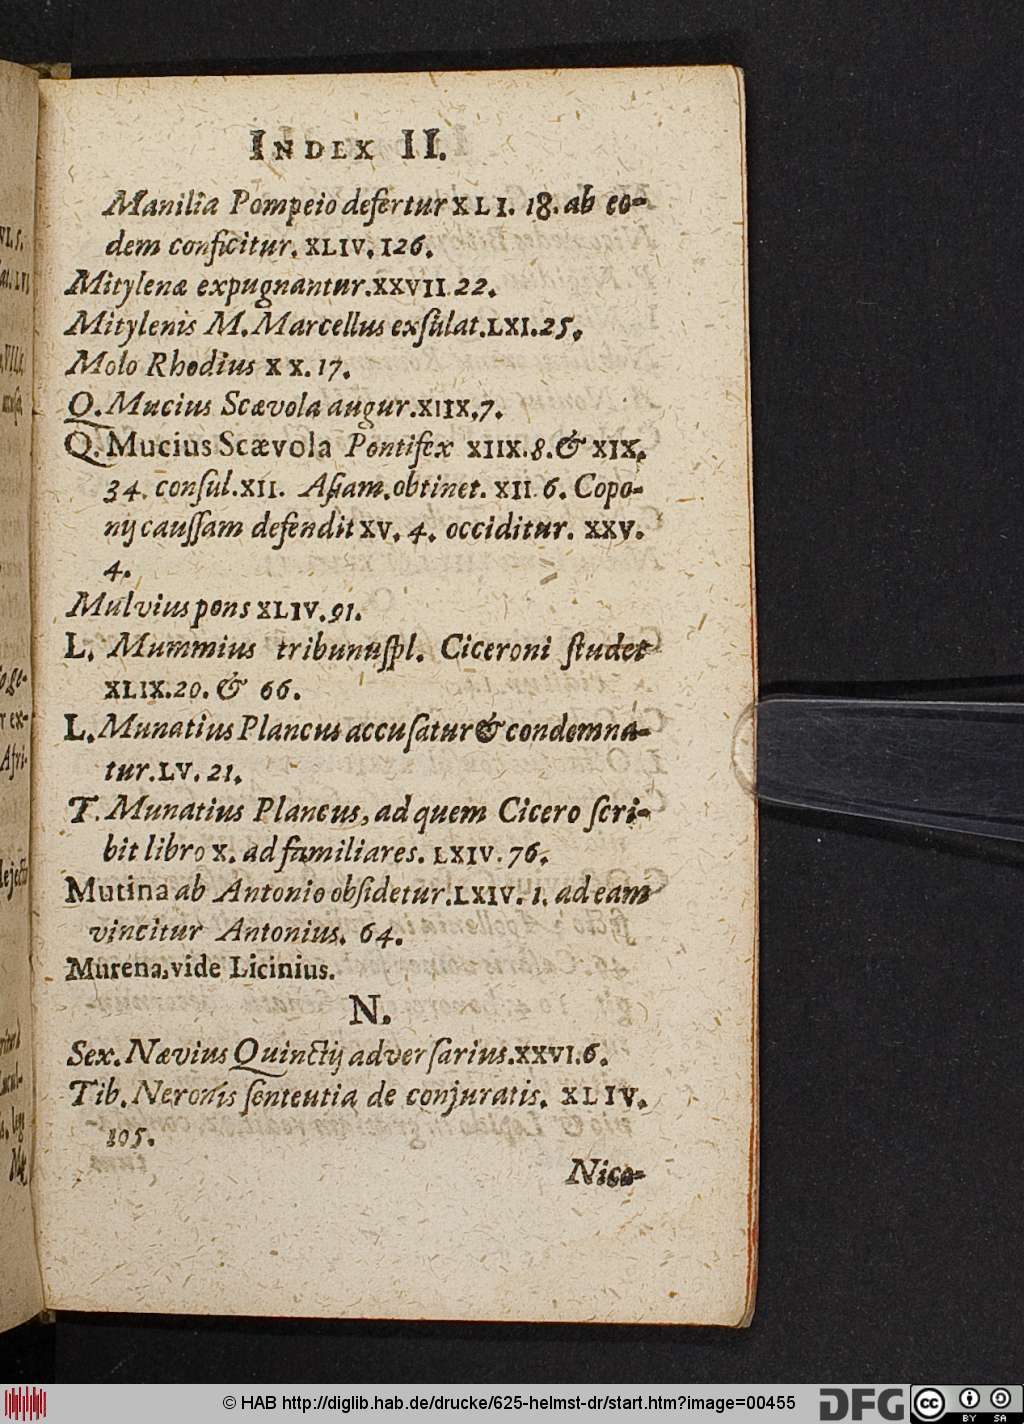 INDEX II.
Manilia Pompeio defertur XLI. 18. ab eo-
dem conficitur. XLIV. 126.
Mitylenæ expugnantur. XXVII 22.
Mitylenis M. Marcellus exsulat. LXI. 25.
Molo Rhodius XX. 17.
Q. Mucius Scævola augur. XIIX. 7.
Q. Mucius Scævola Pontifex XIIX. 8. & XIX.
34. consul. XII. Asiam. obtinet. XII 6. Copo-
nij caussam defendit XV. 4. occiditur. XXV.
4.
Mulvius pons XLIV. 91.
L. Mummius tribunus pl. Ciceroni studet
XLIX. 20. & 66.
L. Munatius Plancus accusatur & condemna-
tur. LV. 21.
T. Munatius Plancus, ad quem Cicero scri-
bit libro X. ad familiares. LXIV. 76.
Mutina ab Antonio obsidetur. LXIV. 1. ad eam
vincitur Antonius. 64.
Murena, vide Licinius.
N.
Sex. Nævius Quinctij adversarius. XXVI. 6.
Tib. Neronis senteutia de conjuratis. XLIV.
105.
Nico-
© HAB http://diglib.hab.de/drucke/625-helmst-dr/start.htm?image=00455
DFG
cc
BY SA